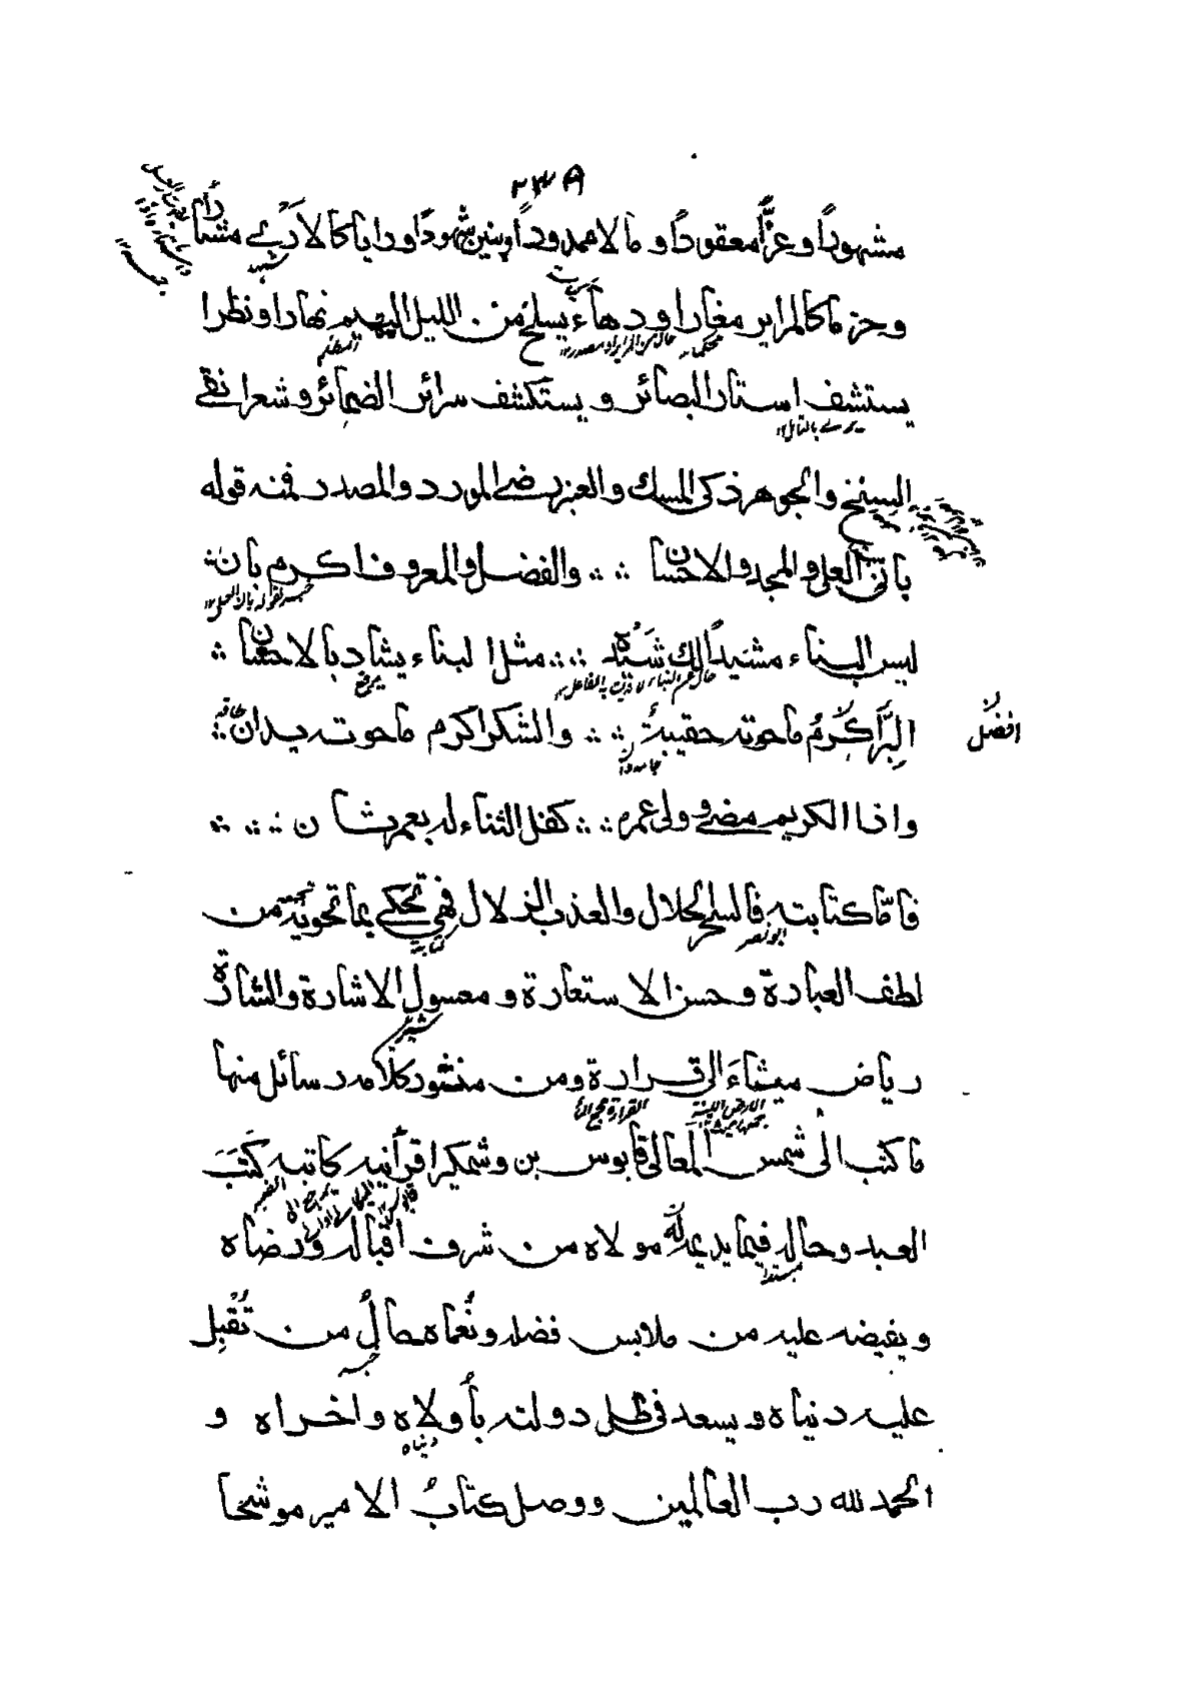 ٢٣٨
مشهودا وعزًّا معقودًا و مالا ممدودًا وبنين شهودًا ورايا كالارْيِ مشارًا
شهد
وحزما كالمراير مغارا ودهاءً يسلخ من الليل البهيم نهارا ونظرا
المظلم
يستشف استار البصائر و يستكشف سرائر الضمائر وشعرا نقے
يرے بالتامل ١٢
السنخ والجوهر ذكى المسك والعنبر رضے المورد والمصدر فمنه قوله
بأنى العلى والمجد والاحسان ∴ ∴ والفضل والمعروف اكرم بان ∴
ليس البناء مشيدًا لك شَيْدُه ∴ ∴ مثل البناء يشاد بالاحسان ∴
يرفع
البِرُّ اكْرَمُ ما حوته حقيبةٌ ∴ ∴ والشكر اكرم ما حوته يدان ∴
افضلُ
جامه دان
واذا الكريم مضے وولى عمره ∴ ∴ كفل الثناء له بعمر ثان ∴ ∴ ∴
فامّا كتابته فالسحر الحلال والعذب الزلال فهى تحكى بما تحويه من
ابو نصر
كتابة
لطف العبارة وحسن الاستعارة و معسول الاشارة والشارة
رياض ميثاءَ الى قرارة ومن منثور كلامه رسائل منها
الارض اللينة
ما كتب الى شمس المعالى قابوس بن وشمكير اقرأنيه كاتبه كَتَبَ
العبد وحاله فيما يدعيه له مولاه من شرف اقباله ورضاه
مبتدا
ويفيضه عليه من ملابس فضله ونُعماه حالُ من تُقْبِل
خبر
عليه دنياه ويسعد فى ظل دولته بأولاه واخراه و
دنياه
الحمد لله رب العالمين ووصل كتابُ الامير موشحا